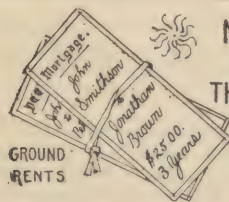 Mortgage.
John
Smithson
to
Jonathan
Brown
$2500.
3 Years
GROUND
RENTS